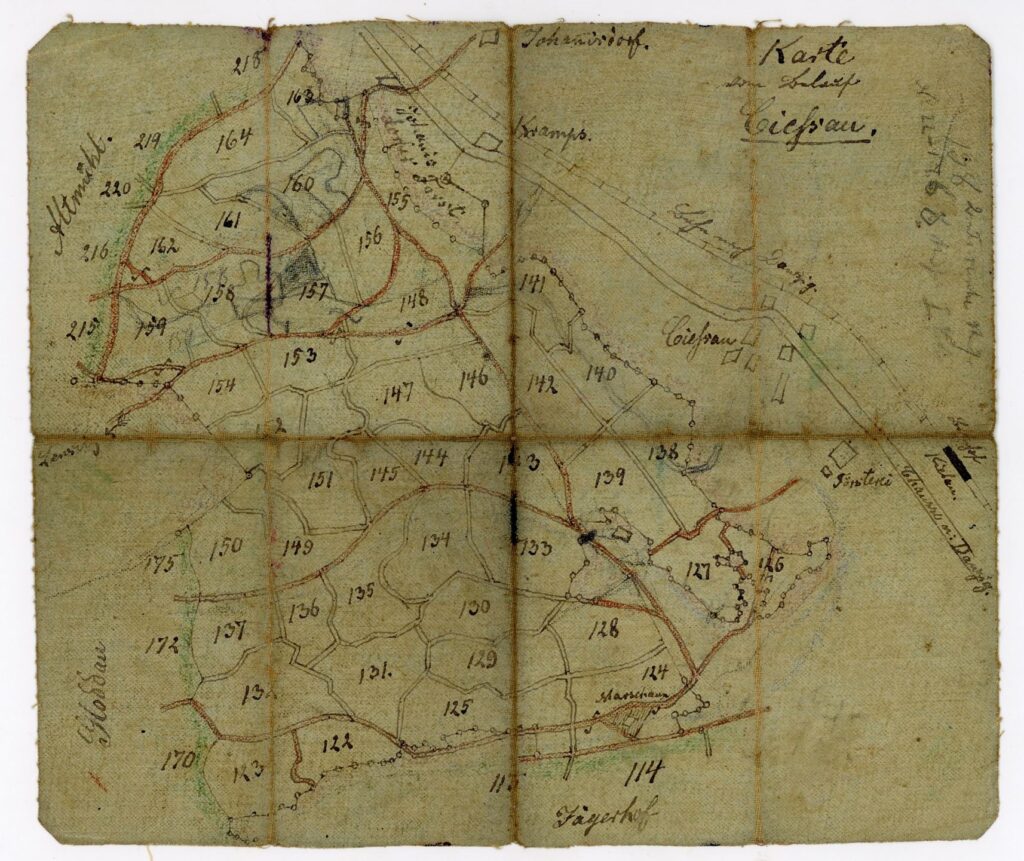 Johannisdorf.
Karte
vom Belauf
Ciessau.
218
163
164
219
Kramps.
Altmühl.
220
160
155
161
156
216
162
158
157
141
148
215
159
Ciessau
153
154
147
146
142
140
144
143
138
139
151
145
Försterei
Kielau
Chaussee n. Danzig.
150
149
134
133
127
126
175
136
135
130
137
128
172
129
131.
124
132
125
Gloddau
122
170
123
115
114
Jägerhof